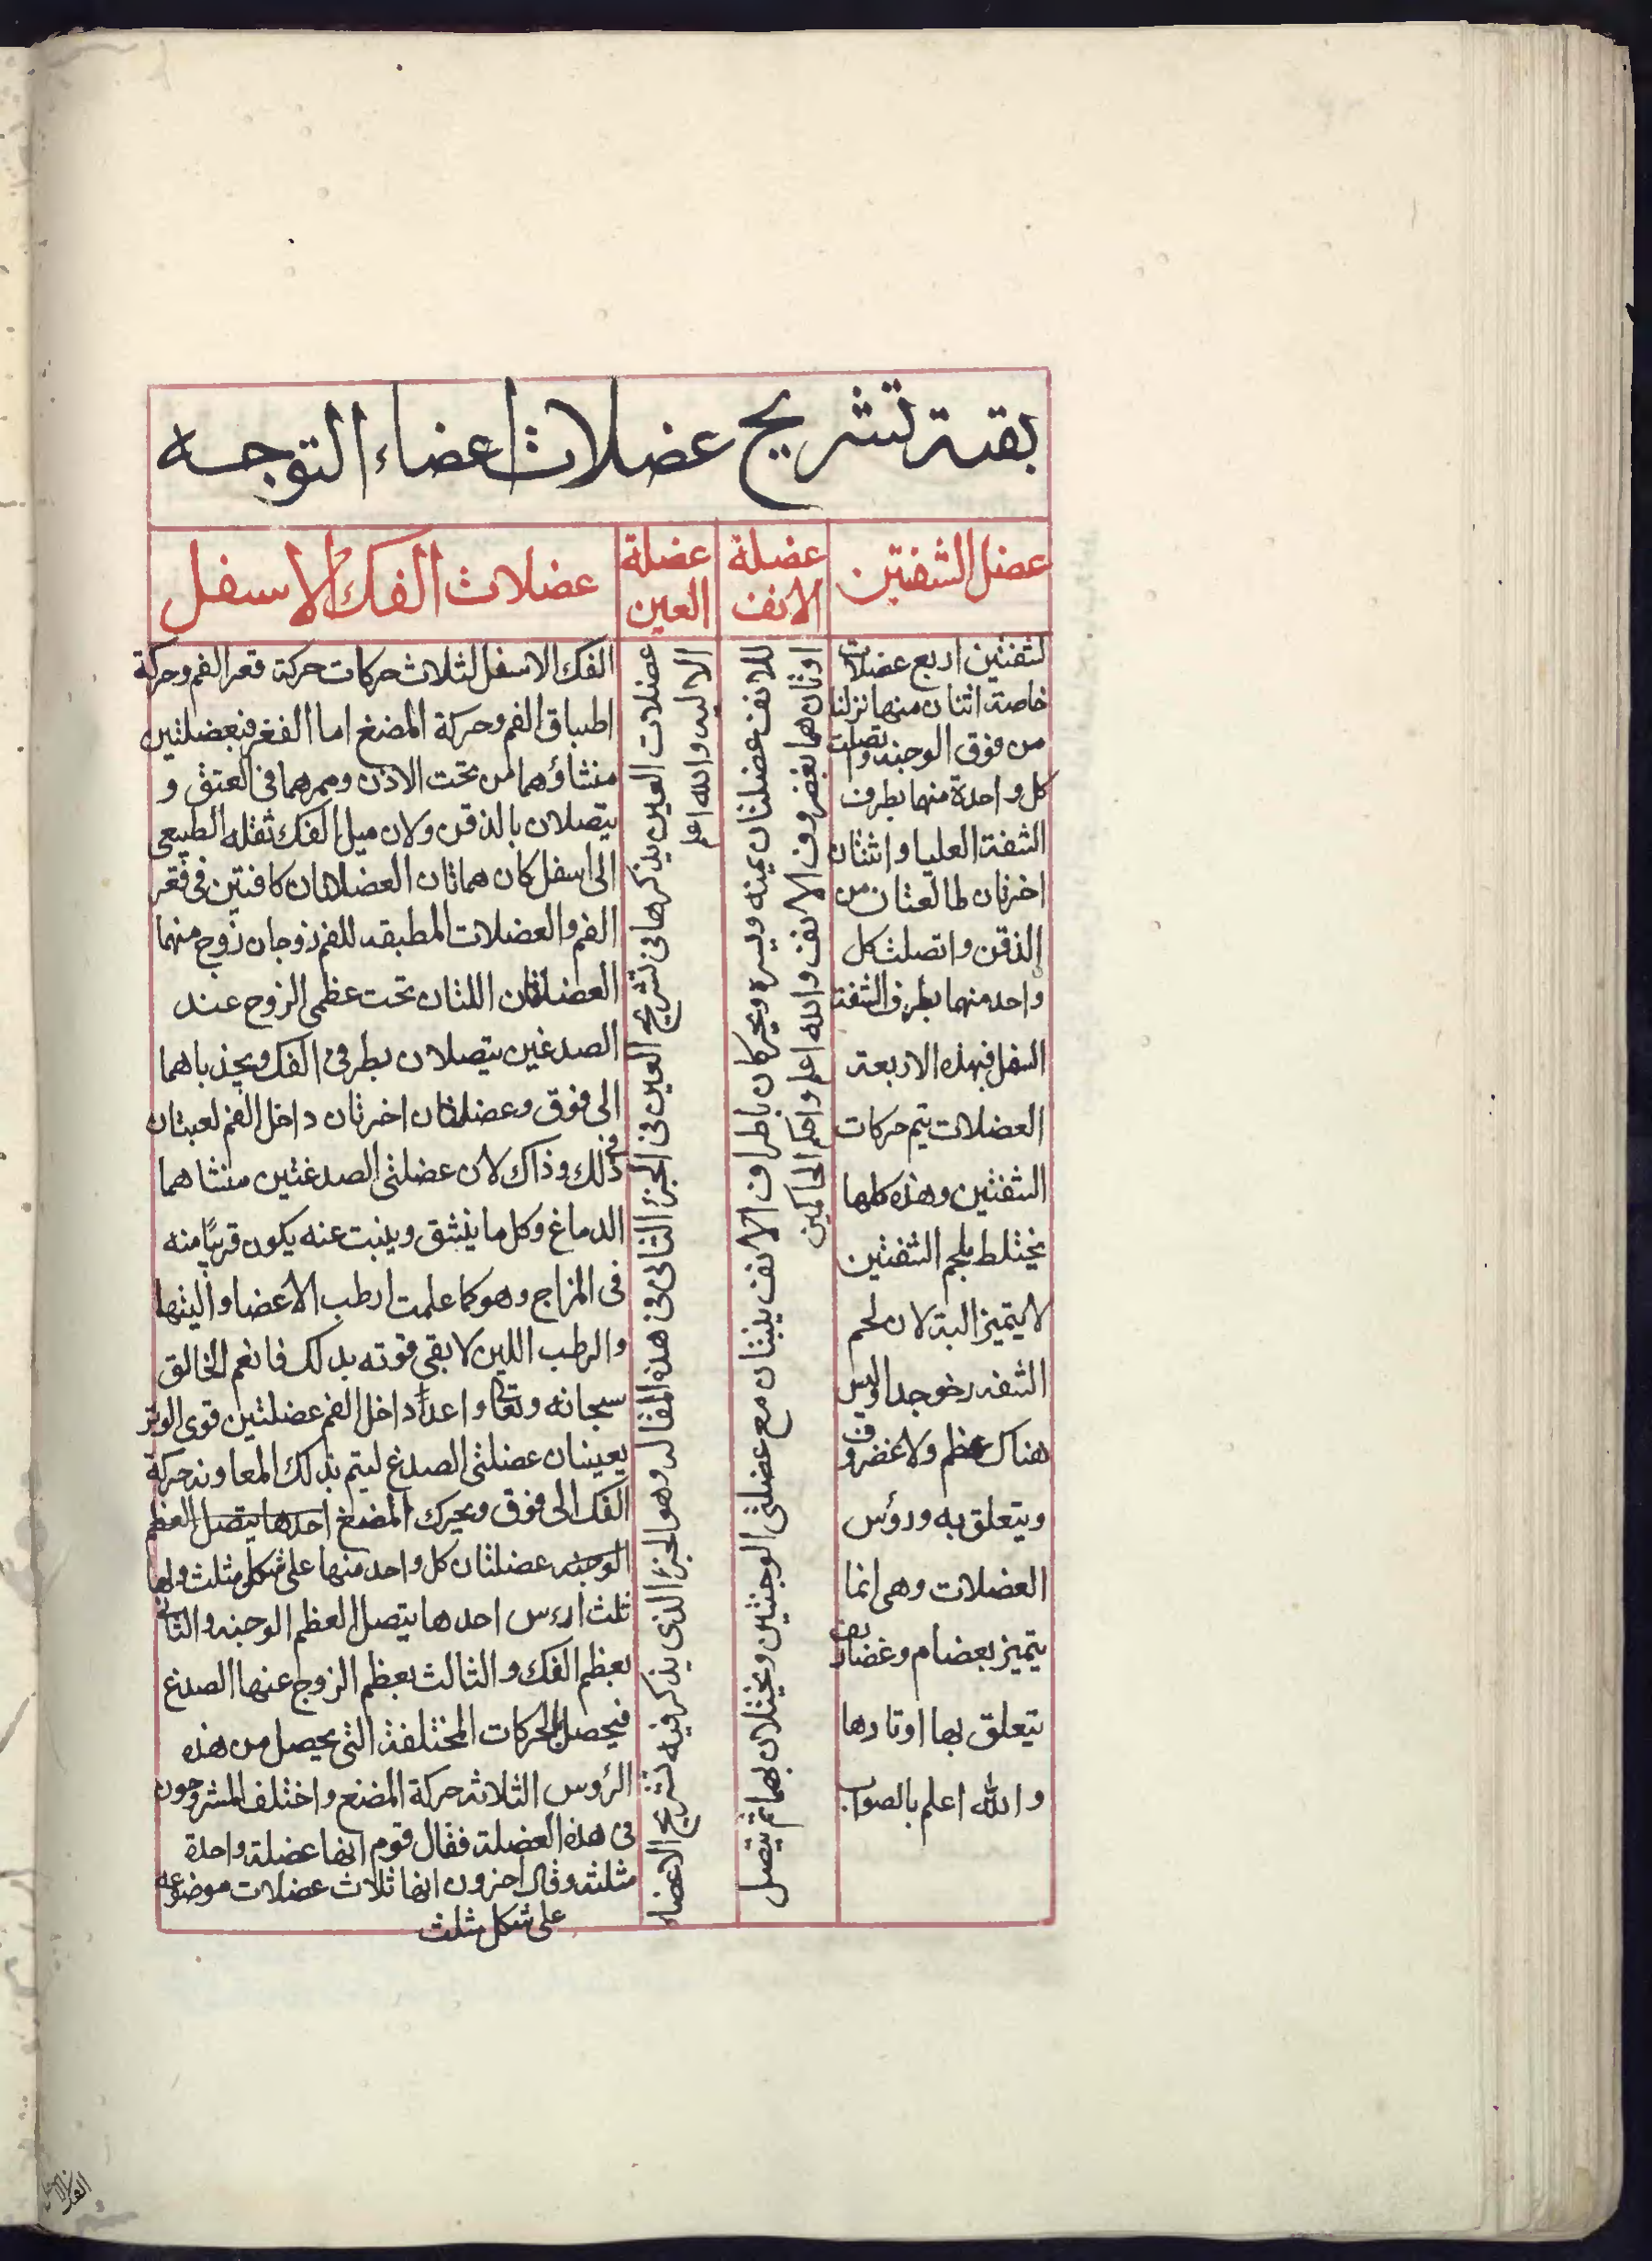 بقية تشريح عضلات اعضاء التوجه
عضل الشفتين
لشفتين اربع عضلات
خاصة اثنان منها نزلنا
من فوق الوجنة واتصلت
كل واحدة منها بطرف
الشفة العليا واثنتان
اخرتان طالعتان من
الذقن واتصلت كل
واحد منهما بطرف الشفة
السفل فبهذه الاربعة
العضلات يتم حركات
الشفتين وهذه كلها
يختلط بلحم الشفتين
لا يتميز البتة لان لحم
الشفه رخو جدا وليس
هناك عظم ولا غضروف
ويتعلق به ورؤس
العضلات وهى انما
يتميز بعضام وغضاريف
يتعلق بها اوتارها
والله اعلم بالصواب
عضلة
الانف
للانف عضلتان يمينه ويسره ويحركان باطراف الانف يلبثان مع عضلتى الوجنتين ويختلان بهما ثم يتصل
اوتان هما بغضروف الانف والله اعلم واحكم الحاكمين
عضلة
العين
عضلات العين يذكرها فى تشريح العين فى الجزء الثانى فى هذه المقاله وهو الجزء الذى يذكر فيه تشريح الاعضاء
الاليه والله اعلم
عضلات الفك الاسفل
الفك الاسفل لثلاث حركات حركة فعر الفم وحركة
اطباق الفم وحركة المضغ اما الفغر فبعضلتين
منشاؤهما من تحت الاذن وممرهما فى العتق و
يتصلان بالذقن ولان ميل الفك ثقله الطبيعى
الى اسفل كان هماتان العضلاتان كافتين فى فقر
الفم والعضلات المطبقه للفم زوجان زوج منهما
العضلاتان اللتان تحت عظمى الزوج عند
الصدغين يتصلان بطرفى الفك ويجذباهما
الى فوق وعضلاتان اخرتان داخل الفم لعبتان
فى ذلك وذاك لان عضلتى الصدغتين منشاهما
الدماغ وكل ما ينشق وينبت عنه يكون قريبًا منه
فى المزاج وهو كما علمت ارطب الاعضا والينها
والرطب اللين لا يقى قوته بدلك فانعم الخالق
سبحانه وتعالى واعدا داخل الفم عضلتين قوى الوتر
يعينان عضلتى الصدغ ليتم بذلك المعاونه حركة
الفك الى فوق ويحرك المضغ احدها يتصل العظم
الوجنه عضلتان كل واحد منها على شكل مثلث ولها
ثلث ارءس احدها يتصل العظم الوجنه والثانى
بعظم الفك والثالث بعظم الزوج عنها الصدغ
فيحصل الحركات المختلفة التى يحصل من هذه
الرؤس الثلاثه حركة المضغ واختلف المشرحون
فى هذه العضلة فقال قوم انها عضلة واحدة
مثلثه وقال اخرون انها ثلاث عضلات موضوعه
على شكل مثلث